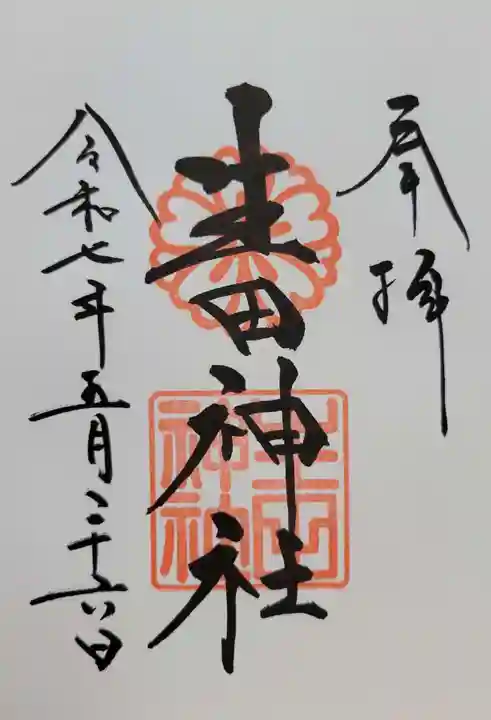 奉拝
生田神社
令和七年五月二十六日
生田
神社